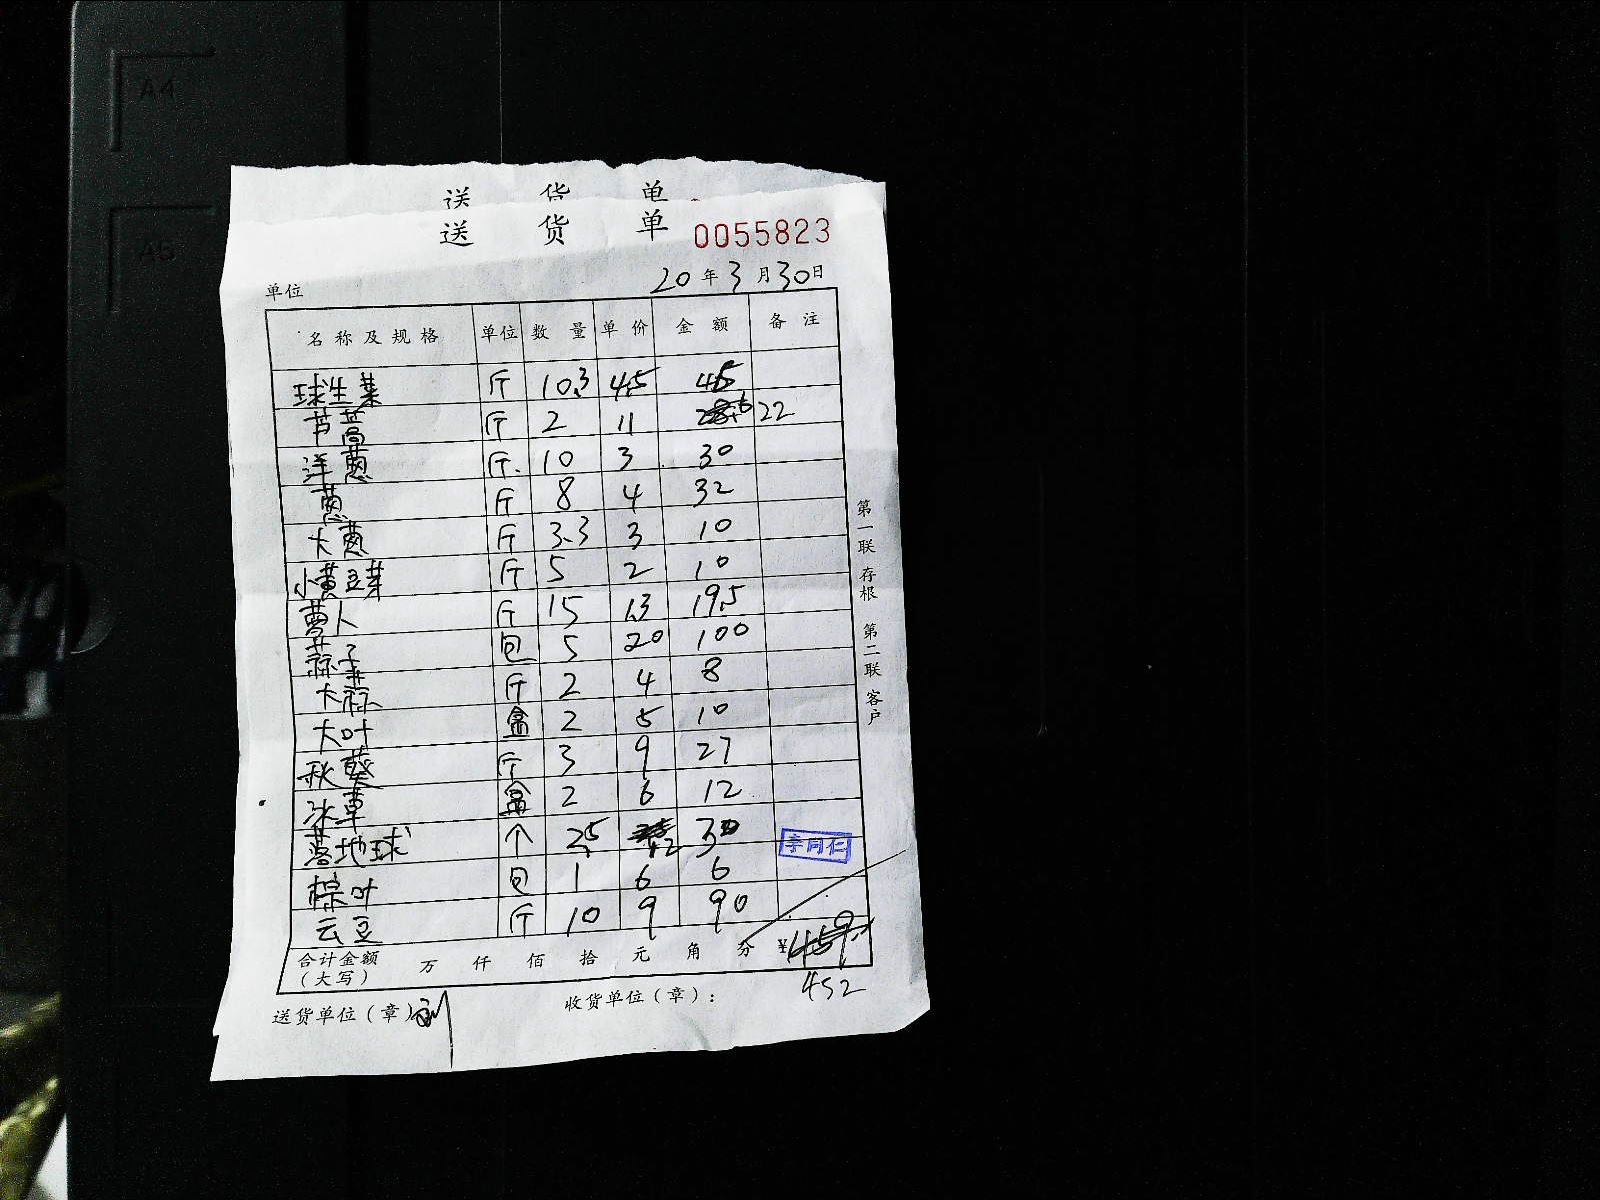 A4
A5
送 货 单
送 货 单 0055823
单位 20年3月30日
名称及规格 单位 数量 单价 金额 备注
球生菜 斤 10.3 4.5 45
芦蒿 斤 2 11 22
洋葱 斤 10 3 30
葱 斤 8 4 32
大葱 斤 3.3 3 10
小黄豆芽 斤 5 2 10
萝卜 斤 15 1.3 19.5
蒜子 包 5 20 100
大蒜 斤 2 4 8
大叶 盒 2 5 10
秋葵 斤 3 9 27
冰草 盒 2 6 12
落地球 个 2.5 12 30
李同仁
棕叶 包 1 6 6
云豆 斤 10 9 90
合计金额（大写） 万 仟 佰 拾 元 角 分 ¥459
452
送货单位（章） 刘 收货单位（章）：
第一联 存根 第二联 客户